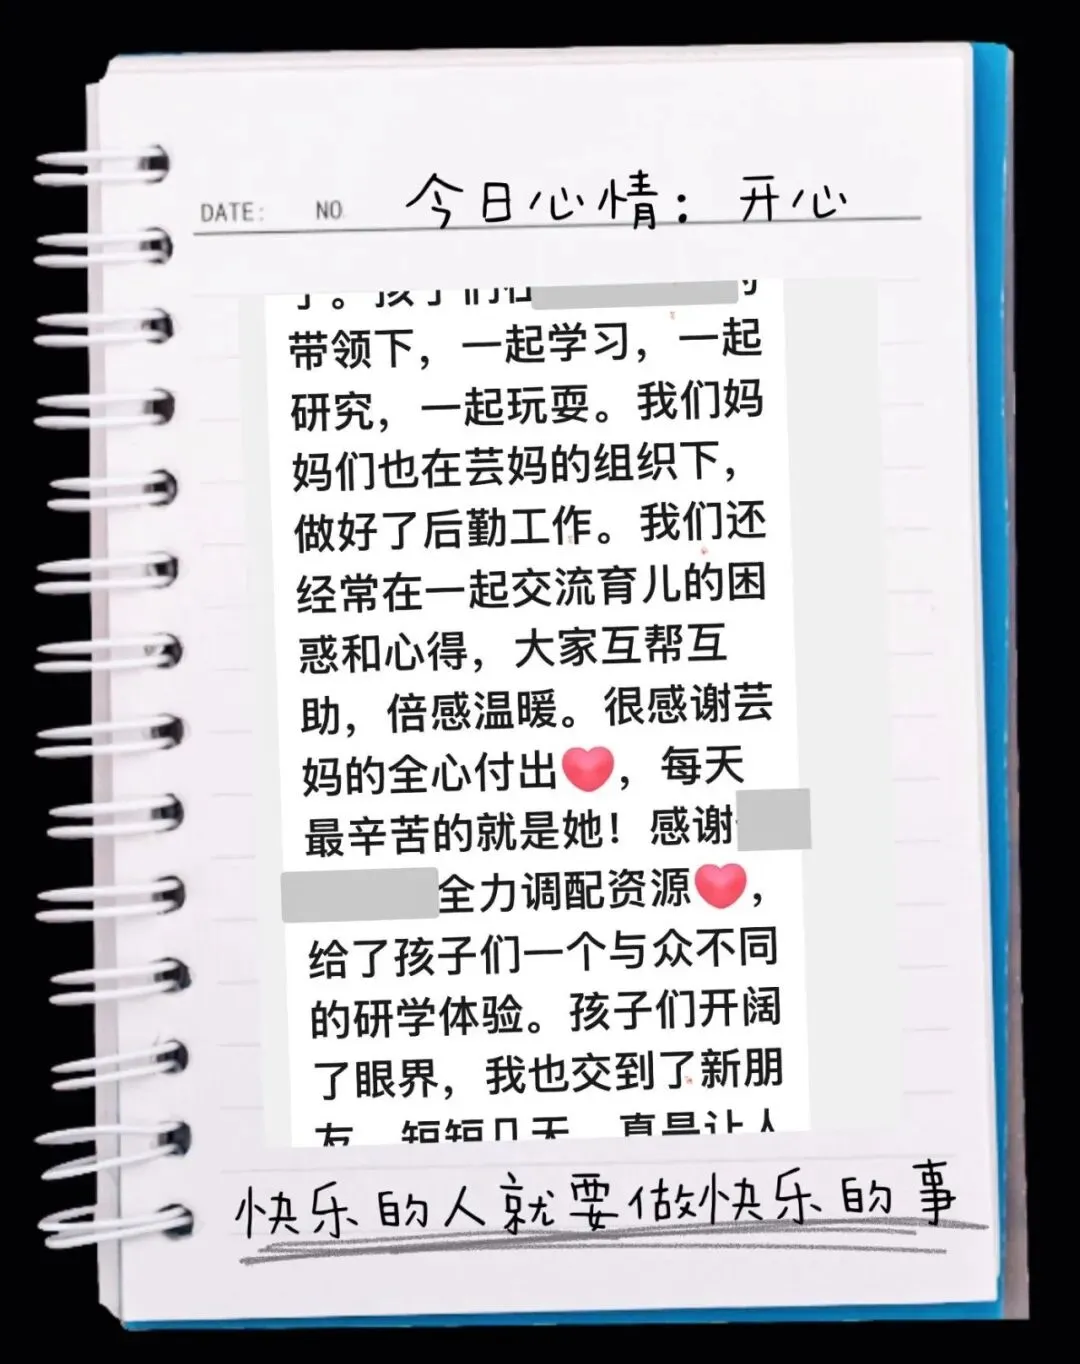 DATE: NO. 今日心情：开心
了。孩子们在
带领下，一起学习，一起
研究，一起玩耍。我们妈
妈们也在芸妈的组织下，
做好了后勤工作。我们还
经常在一起交流育儿的困
惑和心得，大家互帮互
助，倍感温暖。很感谢芸
妈的全心付出❤️，每天
最辛苦的就是她！感谢
全力调配资源❤️，
给了孩子们一个与众不同
的研学体验。孩子们开阔
了眼界，我也交到了新朋
友 短短几天 真是让人
快乐的人就要做快乐的事